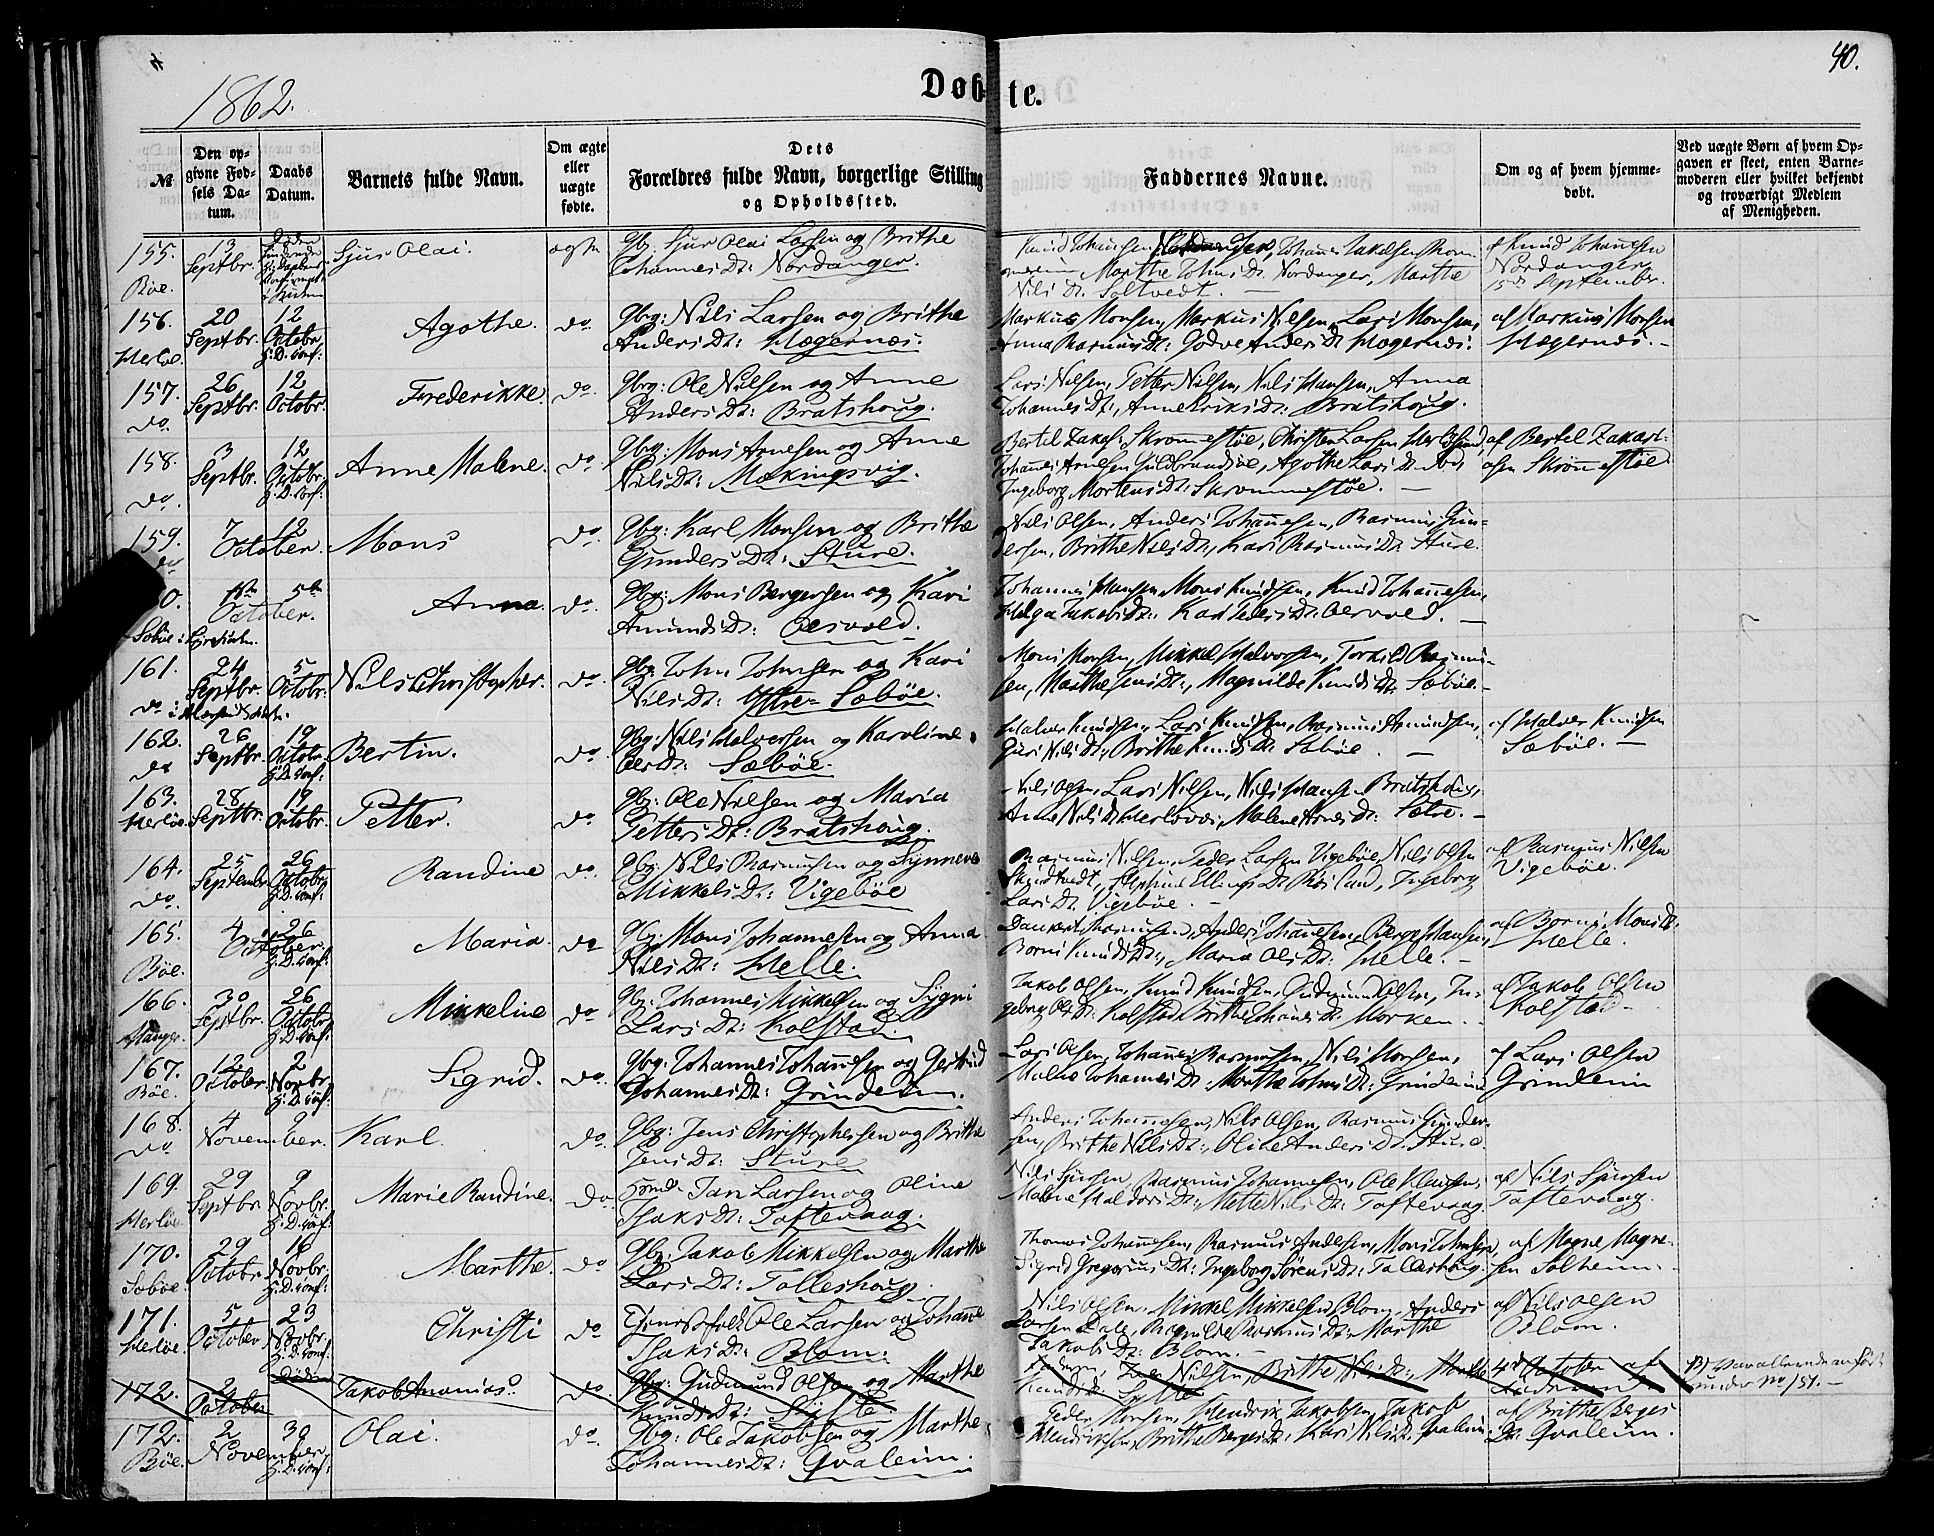 1862.
Døbte.
40.
№
Den opgivne Fødsels Datum.
Daabs Datum.
Barnets fulde Navn.
Om ægte eller uægte fødte.
Dets Forældres fulde Navn, borgerlige Stilling og Opholdssted.
Faddernes Navne.
Om og af hvem hjemmedøbt.
Ved uægte Børn af hvem Opgaven er skeet, enten Barnemoderen eller hvilket bekjendt og troværdigt Medlem af Menigheden.
155. Böe. 13 Septbr. Sjur Olai. ægte
Gbr. Sjur Olai Larsen og Brithe
Johannes Dt: Nordanger.
Knud Johansen Nordanger, Johannes Jakobsen
Marthe Johns Dt. Nordanger, Marthe
Nils Dt. Soltvedt. —
af Knud Johansen
Nordanger,
15de September.
156. Herlöe. 20 Septbr. 12 Octobr. H:D. conf: Agathe. do
Gbrg: Nils Larsen og Brithe
Anders Dt: Hægernæs.
Markus Monsen, Markus Nilsen, Lars Monsen,
Anna Rasmus Dt: Godve, Anders Dt Hægernæs.
af Markus Monsen
Hægernæs. -
157. do. 26 Septbr. 12 Octobr. Frederikke. do.
Gbrg: Ole Nilsen og Anne
Anders Dt: Bratshoug.
Lars Nilsen, Petter Nilsen, Nils Hansen, Anna
Johannes Dt:, Anne Eriks Dt: Bratshoug.
158. do. 3 Septbr. 12 Octobr. H:D. conf: Anne Malene. do
Gbg: Mons Arnesen og Anne
Nils Dt: Mækingsvig.
Bertel Zakas: Skrommestöe, Christen Larsen Herlösund,
Johannes Arnesen Guldbrandsöe, Agothe Lars Dt. ibd,
Ingeborg Mortens Dt: Skrommestöe. —
af Bertel Zakari-
asen Skrommestöe.
159. 7 12 October. Mons do.
Gbg: Karl Monsen og Brithe
Gunders Dt: Sture.
Nils Olsen, Anders Johannesen, Rasmus Gun-
dersen, Brithe Nils Dt, Kari Rasmus Dt Sture.
0. 5te October. Anna. do.
Gbg: Mons Bergersen og Kari
Amunds Dt: Oesvold.
Johannes Hansen, Mons Knudsen, Knud Johannesen,
Helga Jakobs Dt: Kari Peders Dt: Oesvold. —
161. do 24 Septbr. 5 Octobr. Nils Christopher. do.
Gbg: John Johnsen og Kari
Nils Dt: Yttre Sæböe.
Mons Monsen, Mikkel Halvorsen, Torkild Rasmu-
sen, Marthe Jens Dt:, Magnilde Knuds Dt. Sæböe. -
162. do 26 Septbr. 19 Octobr. H:D. conf: Bertin. do
Gbg: Nils Halvorsen og Karoline
Oles Dt: Sæböe.
Halvor Knudsen, Lars Knudsen, Rasmus Amundsen,
Guri Nils Dt:, Brithe Knuds Dt Sæböe. —
af Halvor Knudsen
Sæböe. —
163. Herlöe. 28 Septbr. 19 Octobr. Petter. do.
Gbg: Ole Nilsen og Maria
Petters Dt: Bratshoug.
Nils Olsen, Lars Nilsen, Nils Hansen Bratshoug,
Anne Nils Dt Herlövær, Malene Arnes Dt: Sætre. -
164. do. 25 September 26 Octobr. H:D. conf: Randine do.
Gbg: Nils Rasmussen og Synneve
Mikkels Dt: Vigeböe
Rasmus Nilsen, Peder Larsen Vigeböe, Nils Olsen
Ellings Dt Rösland, Ingeborg
Lars Dt Vigeböe. -
af Rasmus Nilsen
Vigeböe.
165. Böe. 4 26 October. H:D. conf: Maria. do
Gbg: Mons Johannesen og Anna
Nils Dt: Helle.
Dankert Rasmusen, Anders Johannesen, Berge Hansen,
Borni Knuds Dt:, Maria Ols Dt: Helle. -
af Borni Mons Dt:
Helle.
166. Manger. 30 Septbr. 26 Octobr. H:D. conf: Mikkeline do.
Gbg: Johannes Mikkelsen og Sygni
Lars Dt: Kolstad.
Jakob Olsen, Knud Knudsen, Gudmund Olsen, In-
geborg Ols Dt: Kolstad, Brithe Johannes Dt: Morken. -
af Jakob Olsen
Kolstad -
167. Böe. 12 October 2 Novbr. H:D. conf: Sigrid. do.
Gbrg: Johannes Johannsen og Gertrud
Johannes Dt: Grindem.
Lars Olsen, Johannes Rasmusen, Nils Monsen,
Malie Johannes Dt:, Marthe Johns Dt: Grindem
af Lars Olsen
Grindem
168. do 4 9 November. Karl. do.
Gbg: Jens Christophersen og Brithe
Jens Dt: Sture
Anders Johannesen, Nils Olsen, Rasmus Gunder-
sen, Brithe Nils Dt:, Oline Anders Dt. Sture
169. Herlöe. 29 Septbr. 9 Novbr. H:D. conf: Marie Randine. do
Jan Larsen og Oline
Isaks Dt: Toftevaag.
Nils Sjursen, Rasmus Johannesen, Ole Klausen,
Malene Haldors Dt:, Mette Nils Dt: Toftevaag.
af Nils Sjursen
Toftevaag.
170. Sæböe. 29 Octobr. 16 Novbr. H:D. conf: Marthe. do
Gbg: Jakob Mikkelsen og Marthe
Lars Dt: Tolleshoug.
Thomas Johannesen, Rasmus Andersen, Mons Johnsen,
Sigrid Gregorius Dt:, Ingeborg Sörens Dt: Tolleshoug.
af Mogne Mogne-
sen Solheim. -
171. Herlöe. 5 October 23 Novbr. H:D. conf: Christi do
Ole Larsen og Johanne
Isaks Dt: Blom.
Nils Olsen, Mikkel Mikkelsen Blom, Anders
Larsen Dale, Ragnilde Rasmus Dt:, Marthe
Jakobs Dt: Blom. -
af Nils Olsen
Blom.
172. 2 October Jakob Ananias. do.
Gbr: Gudmund Olsen og Marthe
Knuds Dt: Sylte
Nilsen, Brithe Nils Dt:, Marthe
Knuds Dt: Sylte
4de October af
under No 151. -
172. Böe. 2 30 November. H:D. conf: Olai. do.
Gbg: Ole Jakobsen og Marthe
Johannes Dt: Qvaleim.
Peder Monsen, Hendrik Jakobsen, Jakob
Hendriksen, Brithe Berges Dt:, Kari Nils Dt. Qvaleim
af Brithe Berges
Dt: Qvaleim.